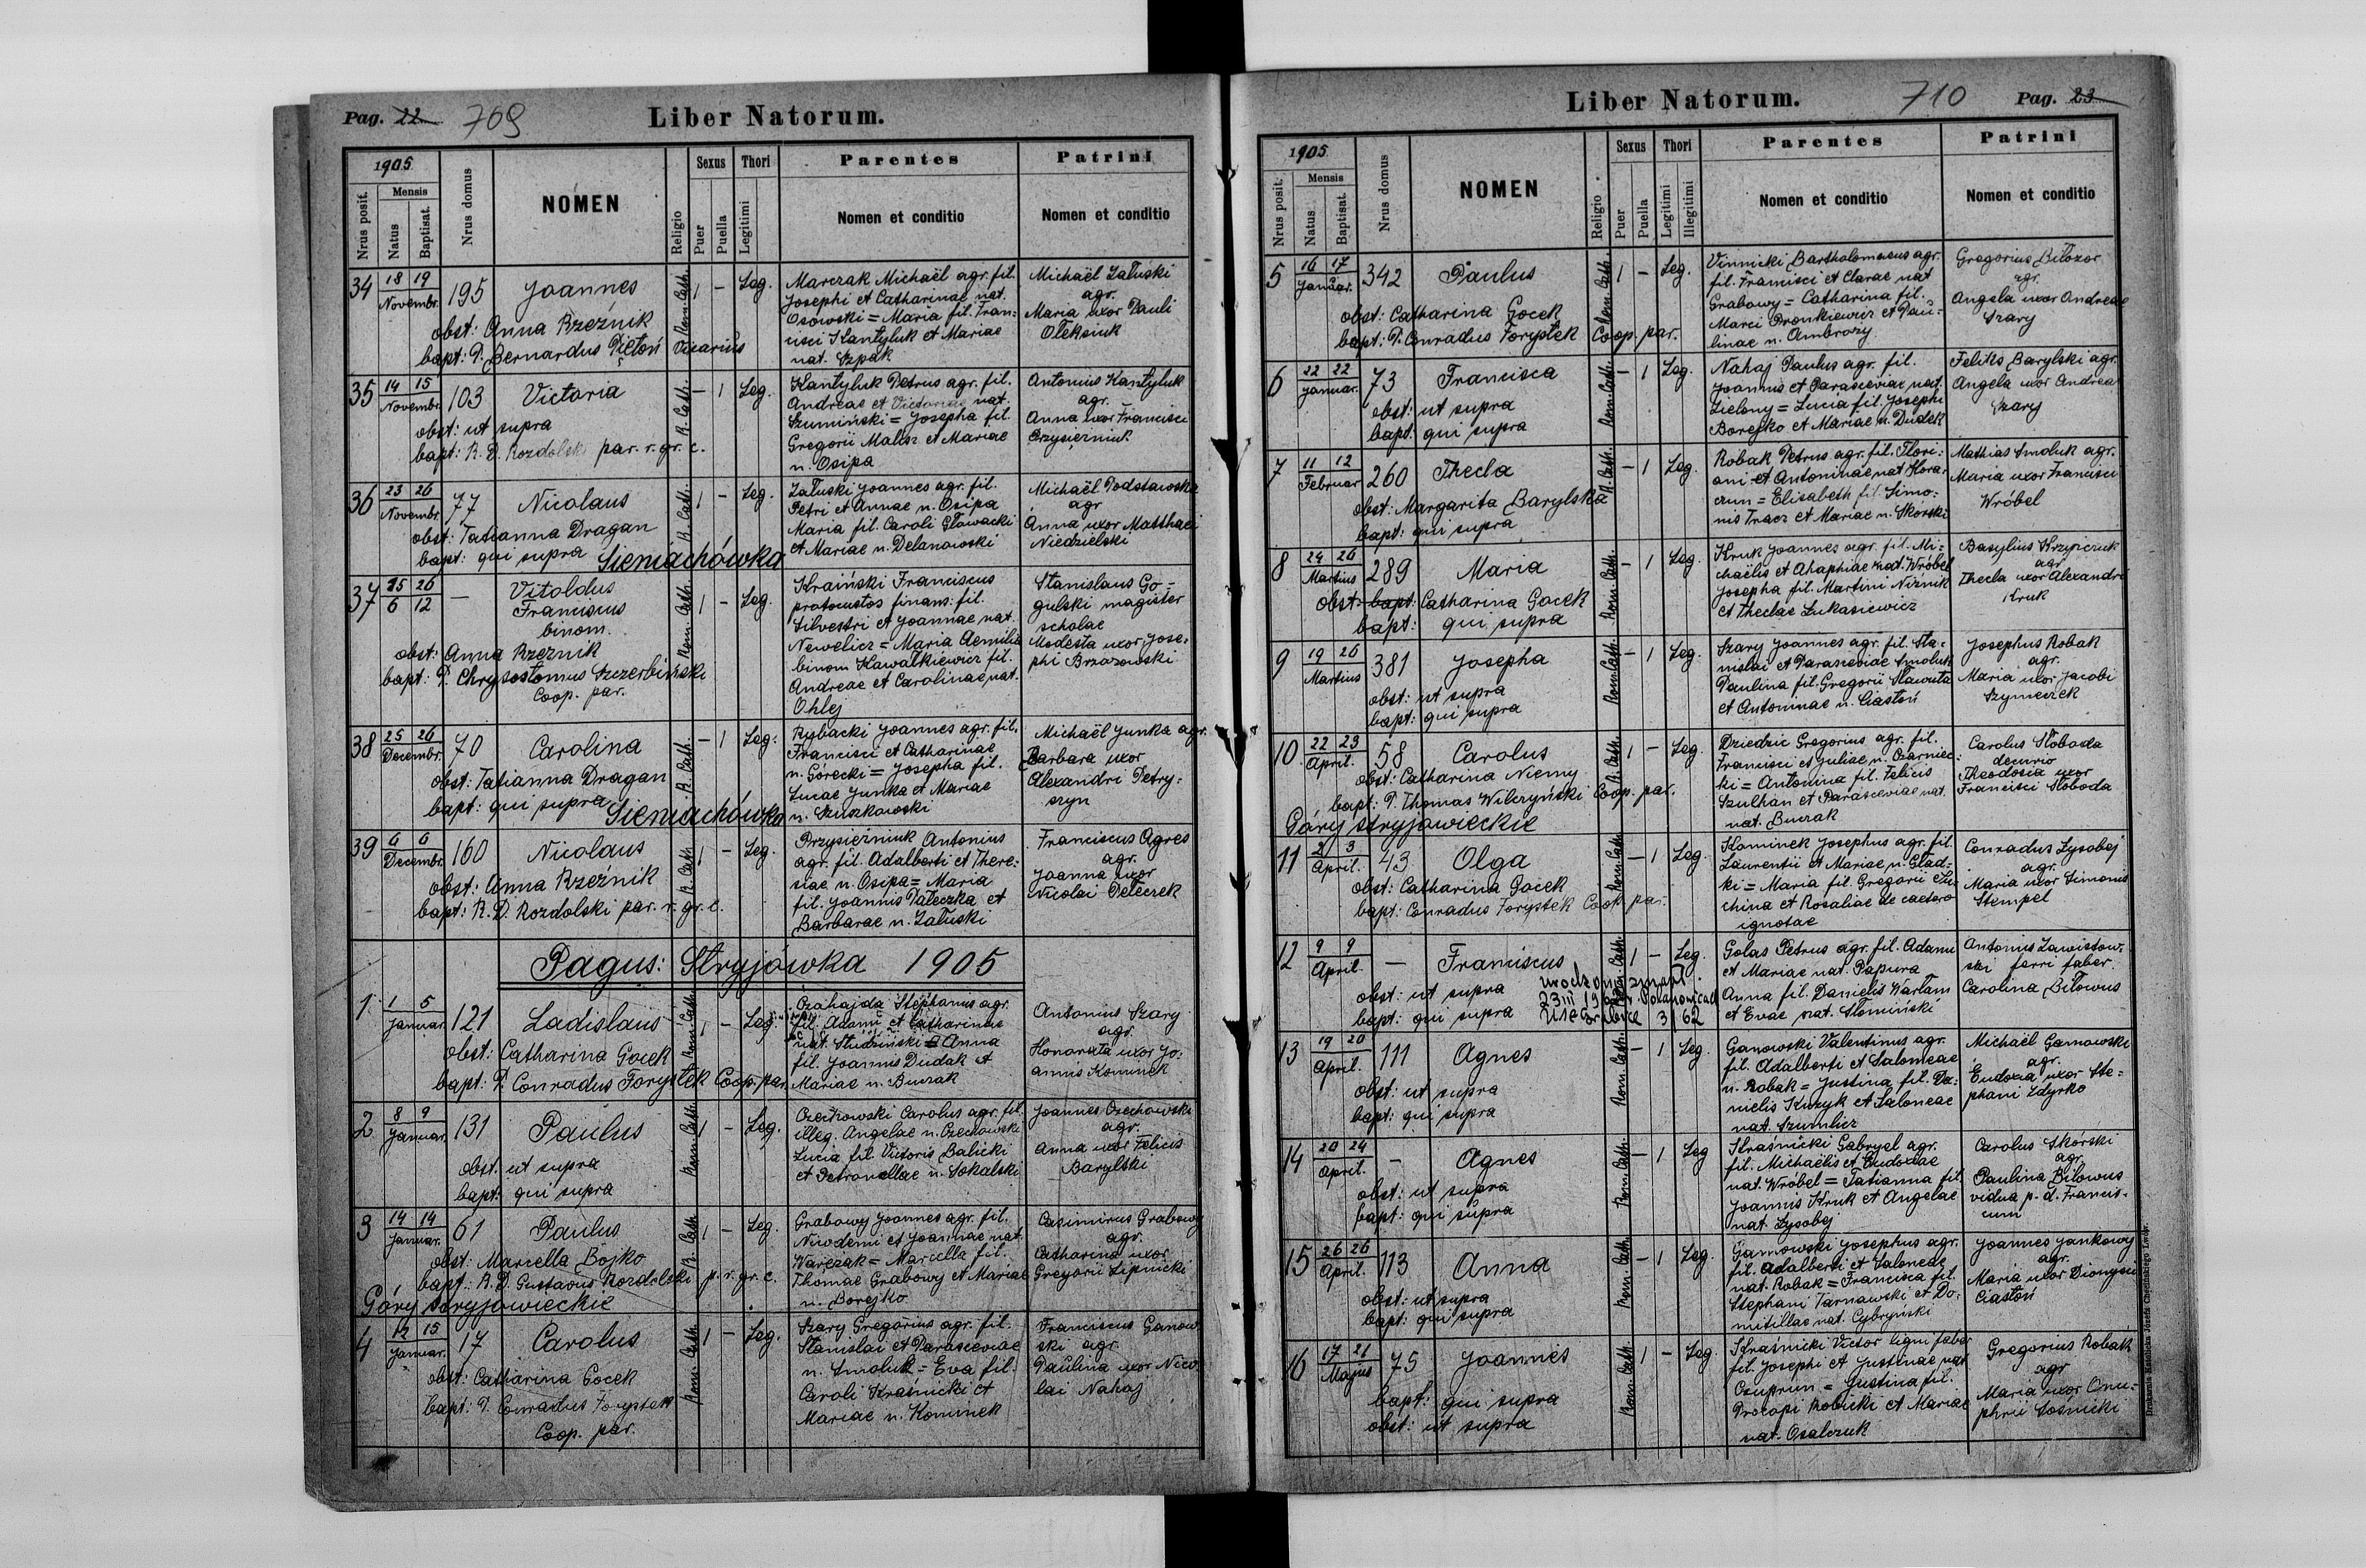 Pag. 22 709 Liber Natorum.
1905
Nrus posit.
Mensis
Natus
Baptisat.
Nrus domus
NOMEN
Religio
Sexus
Puer
Puella
Thori
Legitimi
Parentes
Nomen et conditio
Patrini
Nomen et conditio
34 18 19 Novembr. 195 Joannes Rom. Cath. 1 – Leg.
obst: Anna Rzeźnik
bapt: P. Bernardus Pięton Vicarius
Marczak Michaël agr. fil.
Josephi et Catharinae nat.
Osowski = Maria fil. Fran-
cisci Kantyluk et Mariae
nat. Szpak
Michaël Załuski
agr.
Maria uxor Pauli
Oleksiuk
35 14 15 Novembr. 103 Victoria R. Cath. – 1 Leg.
obst: ut supra
bapt: R. D. Rozdolski par. r. gr. c.
Kantyluk Petrus agr. fil.
Andreae et Victoriae nat.
Szumiński = Josepha fil.
Gregorii Malisz et Mariae
n. Osipa
Antonius Kantyluk
agr.
Anna uxor Francisci
36 23 26 Novembr. 77 Nicolaus R. Cath. 1 – Leg.
obst: Tatianna Dragan
bapt: qui supra Sieniachówka
Załuski Joannes agr. fil.
Petri et Annae n. Osipa
Maria fil. Caroli Głowacki
et Mariae n. Delanowski
Michaël Podstawska
agr
Anna uxor Matthaei
Niedzielski
37 25 26 6 12 — Vitoldus
Franciscus
binom. Rom. Cath. 1 – Leg.
obst: Anna Rzeźnik
bapt: P. Chrysostomus Szczerbiński
Coop. par.
Kraiński Franciscus
protocustos finans. fil.
Silvestri et Joannae nat.
Newelicz = Maria Aemilia
binom Kawałkiewicz fil.
Andreae et Carolinae nat.
Ohlej
Stanislaus Go-
gulski magister
scholae
Modesta uxor Jose-
phi Brzozowski
38 25 26 Decembr. 70 Carolina R. Cath. – 1 Leg.
obst: Tatianna Dragan
bapt: qui supra Sieniachówka
Rybacki Joannes agr. fil.
Francisci et Catharinae
n. Górecki = Josepha fil.
Lucae Junka et Mariae
n. Szuszkowski
Michaël Junka agr.
Barbara uxor
Alexandri Petry-
szyn
39 6 6 Decembr. 160 Nicolaus R. Cath. 1 – Leg.
obst: Anna Rzeźnik
bapt: R. D. Rozdolski par. r. gr. c.
Przysiężniuk Antonius
agr. fil. Adalberti et There-
siae n. Osipa = Maria
fil. Joannis Pałeczka et
Barbarae n. Załuski
Franciscus Agres
agr.
Joanna uxor
Nicolai Deleczek
Pagus: Stryjówka 1905
1. 1 5 Januar. 121 Ladislaus Rom. Cath. 1 – Leg.
obst: Catharina Gocek
bapt: P. Conradus Forystek Coop. par.
Prahajda Stephanus agr.
fil. Adami et Catharinae
nat. Studziński = Anna
fil. Joannis Dudak et
Mariae n. Burak
Antonius Szary
agr.
Honorata uxor Jo-
annis Kominek
2 8 9 Januar. 131 Paulus Rom. Cath. 1 – Leg.
obst. ut supra
bapt: qui supra
Czechowski Carolus agr. fil.
illeg. Angelae n. Czechowski
Lucia fil. Victoris Balicki
et Petronellae n. Sokalski
Joannes Czechowski
agr.
Anna uxor Felicis
Barylski
3 14 14 Januar. 61 Paulus R. Cath. 1 – Leg.
obst: Marcella Bojko
bapt: R. D. Gustavus Rozdolski p. r. gr. c.
Góry stryjowieckie
Grabowy Joannes agr. fil.
Nicodemi et Joannae nat.
Warczak = Marcella fil.
Thomae Grabowy et Mariae
n. Borejko
Casimirus Grabowy
agr.
Catharina uxor
Gregorii Lipnicki
4 12 15 Januar. 17 Carolus Rom. Cath. 1 – Leg.
obst: Catharina Gocek
bapt: P. Conradus Forystek
Coop. par.
Szary Gregorius agr. fil.
Stanislai et Parasceviae
n. Smoluk = Eva fil.
Caroli Kraśnicki et
Mariae n. Kominek
Franciscus Ganow
ski agr.
Paulina uxor Nico
lai Nahaj
Liber Natorum. 710 Pag. 23
1905
Nrus posit.
Mensis
Natus
Baptisat.
Nrus domus
NOMEN
Religio
Sexus
Puer
Puella
Thori
Legitimi
Illegitimi
Parentes
Nomen et conditio
Patrini
Nomen et conditio
5 16 17 Januar. 342 Paulus Rom. Cath. 1 – Leg.
obst: Catharina Gocek
bapt: P. Conradus Forystek Coop. par.
Vinnicki Bartholomaeus agr.
fil. Francisci et Clarae nat
Grabowy = Catharina fil.
Marci Pronkiewicz et Pau-
linae n. Ambrozy
Gregorius Biłozor
agr.
Angela uxor Andreae
Szary
6 22 22 Januar. 73 Francisca Rom. Cath. – 1 Leg.
obst: ut supra
bapt: qui supra
Nahaj Paulus agr. fil.
Joannis et Parasceviae nat.
Zielony = Lucia fil. Josephi
Borejko et Mariae n. Dudek
Feliks Barylski agr.
Angela uxor Andrea
Szary
7 11 12 Februar 260 Thecla R. Cath. – 1 Leg.
obst: Margarita Barylska
bapt: qui supra
Robak Petrus agr. fil. Flori-
ani et Antoninae nat Hora-
czun = Elisabeth fil. Simo-
nis Tracz et Mariae n. Skorski
Mathias Smoluk agr.
Maria uxor Francisci
Wróbel
8 24 26 Martius 289 Maria Rom. Cath. – 1 Leg.
obst: bapt: Catharina Gocek
bapt: qui supra
Kruk Joannes agr. fil. Mi-
chaëlis et Ahaphiae nat. Wróbel
Josepha fil. Martini Niźnik
et Theclae Lukasiewicz
Basylius Krzywczuk
agr
Thecla uxor Alexandri
Kruk
9 19 26 Martius 381 Josepha Rom. Cath. – 1 Leg.
obst: ut supra
bapt: qui supra
Szary Joannes agr. fil. Sta-
nislai et Parasceviae Smoluk
Paulina fil. Gregorii Sławuta
et Antoninae n. Ciastoń
Josephus Robak
agr.
Maria uxor Jacobi
Szymeczek
10 22 23 April. 58 Carolus R. Cath. 1 – Leg.
obst: Catharina Niemy
bapt: P. Thomas Wilczyński Coop. par.
Góry stryjowieckie
Dziedzic Gregorius agr. fil.
Francisci et Juliae n. Czarniec-
ki = Antonina fil. Felicis
Szulhan et Parasceviae nat.
nat. Burak
Carolus Słoboda
decurio
Theodosia uxor
Francisci Słoboda
11 2 3 April. 43 Olga Rom. Cath. – 1 Leg.
obst: Catharina Gocek
bapt: Conradus Forystek Coop. par.
Kominek Josephus agr. fil.
Laurentii et Mariae n. Glad-
ki = Maria fil. Gregorii Su-
china et Rosaliae de caetero
ignotae
Conradus Lysobej
agr.
Maria uxor Simonis
Stempel
12 9 9 April. — Franciscus Rom. Cath. 1 – Leg.
obst: ut supra
bapt: qui supra
3/62
Golas Petrus agr. fil. Adami
et Mariae nat. Papura
Anna fil. Danielis Warłam
et Evae nat. Słomiński
Antonius Zawistow-
ski ferri faber.
Carolina Biłowus
13 19 20 April. 111 Agnes Rom. Cath. – 1 Leg.
obst: ut supra
bapt: qui supra
Ganowski Valentinus agr.
fil. Adalberti et Salomeae
n. Robak = Justina fil. Da-
nielis Kuzyk et Salomeae
nat. Szumlicz
Michaël Ganowski
agr.
Eudoxia uxor Ste-
phani Zdyrko
14 20 24 April. – Agnes Rom. Cath. – 1 Leg
obst: ut supra
bapt: qui supra
Kraśnicki Gabryel agr.
fil. Michaëlis et Eudoxiae
nat. Wróbel = Tatianna fil.
Joannis Kruk et Angelae
nat. Lysobej
Carolus Skórski
agr.
Paulina Biłowus
vidua p. d. Francis-
cum
15 26 26 April. 113 Anna Rom. Cath. – 1 Leg.
obst: ut supra
bapt: qui supra
Ganowski Josephus agr.
fil. Adalberti et Salomeae
nat. Robak = Francisca fil.
Stephani Tarnawski et Do-
mitillae nat. Cybryński
Joannes Jankowy
agr.
Maria uxor Dionysii
Ciastoń
16 17 21 Majus 75 Joannes Rom. Cath. 1 – Leg
bapt: qui supra
obst: ut supra
Kraśnicki Victor ligni faber
fil. Josephi et Justinae nat
Czuprun = Justina fil.
Procopi Robicki et Mariae
nat. Osalczuk
Gregorius Robak
agr
Maria uxor Onu-
phrii Łośnicki
Drukarnia Katolicka Józefa Chęcińskiego Lwów.